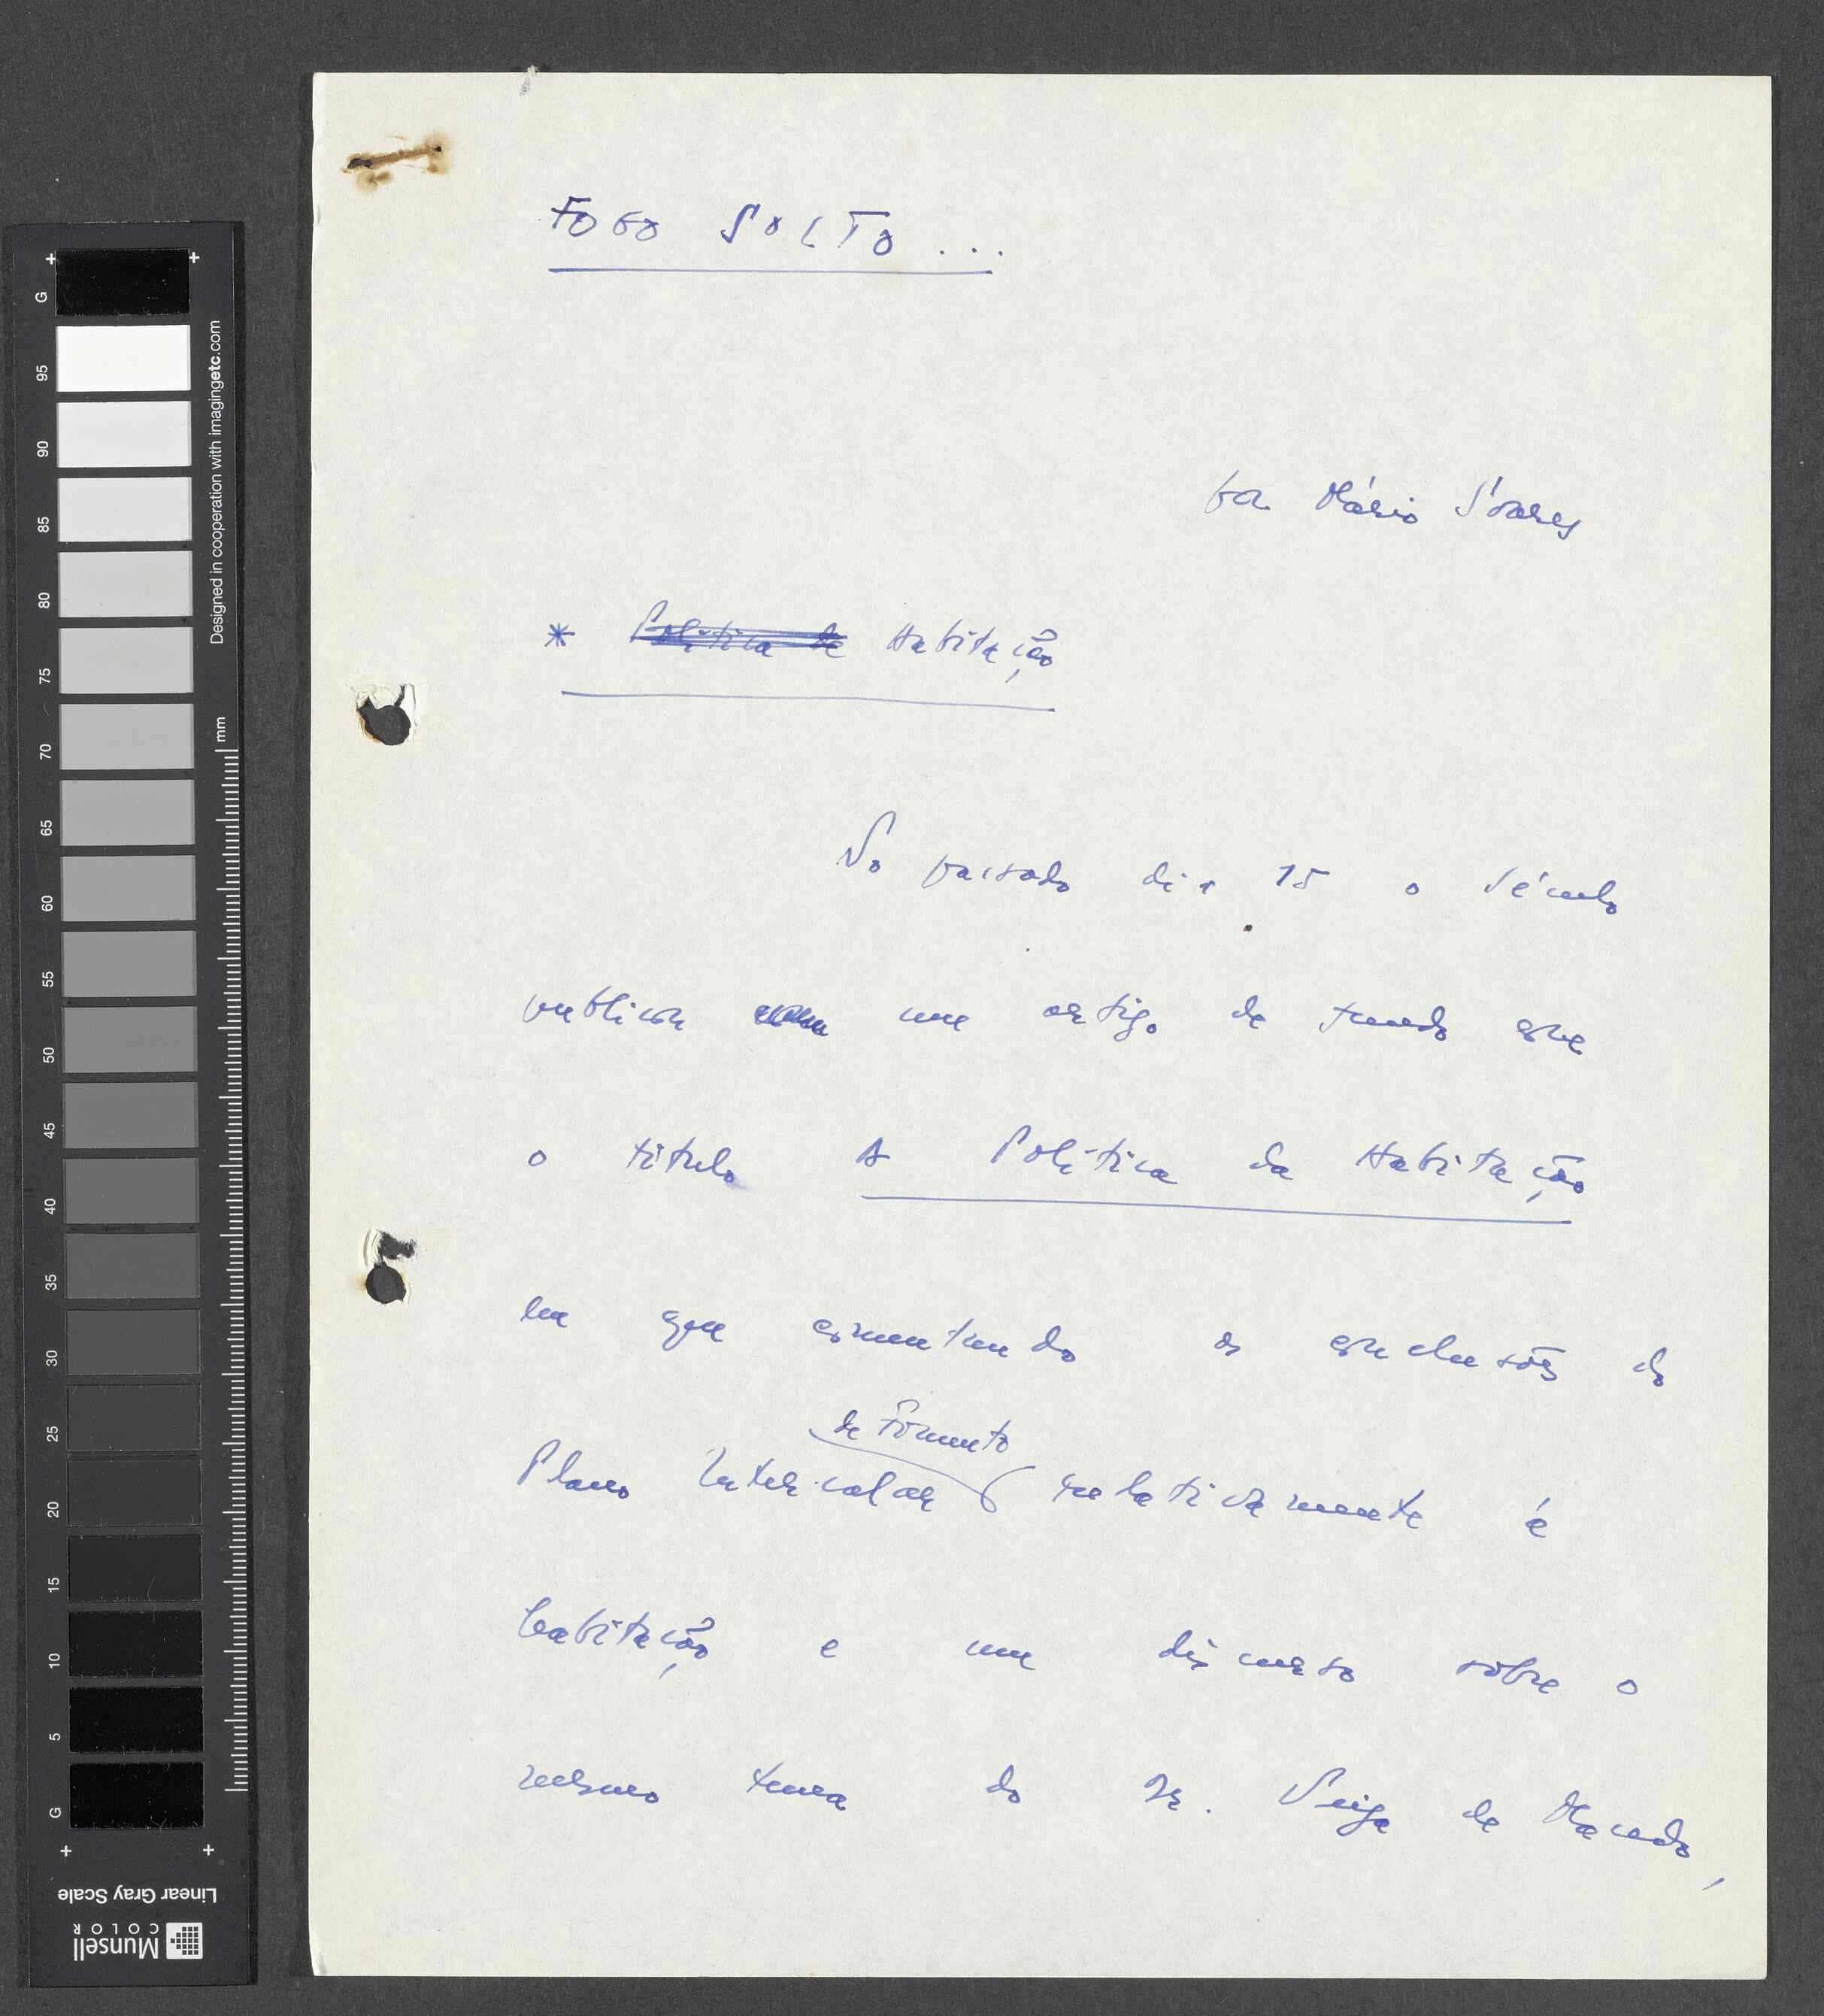 FOGO SOLTO ...
por Mário Soares
* Política de Habitação
No passado dia 15 o Século
publicou um artigo de fundo com
o titulo A Política da Habitação
em que comentando as conclusões do
de Fomento
Plano Intercalar relativamente à
habitação e um discurso sôbre o
mesmo tema do Dr. Veiga de Macedo,
+ +
G
95
90
85
80
75
70
65
60
55
50
45
40
35
30
25
20
15
10
5
G
+ +
Designed in cooperation with imagingetc.com
mm
Linear Gray Scale
Munsell
COLOR